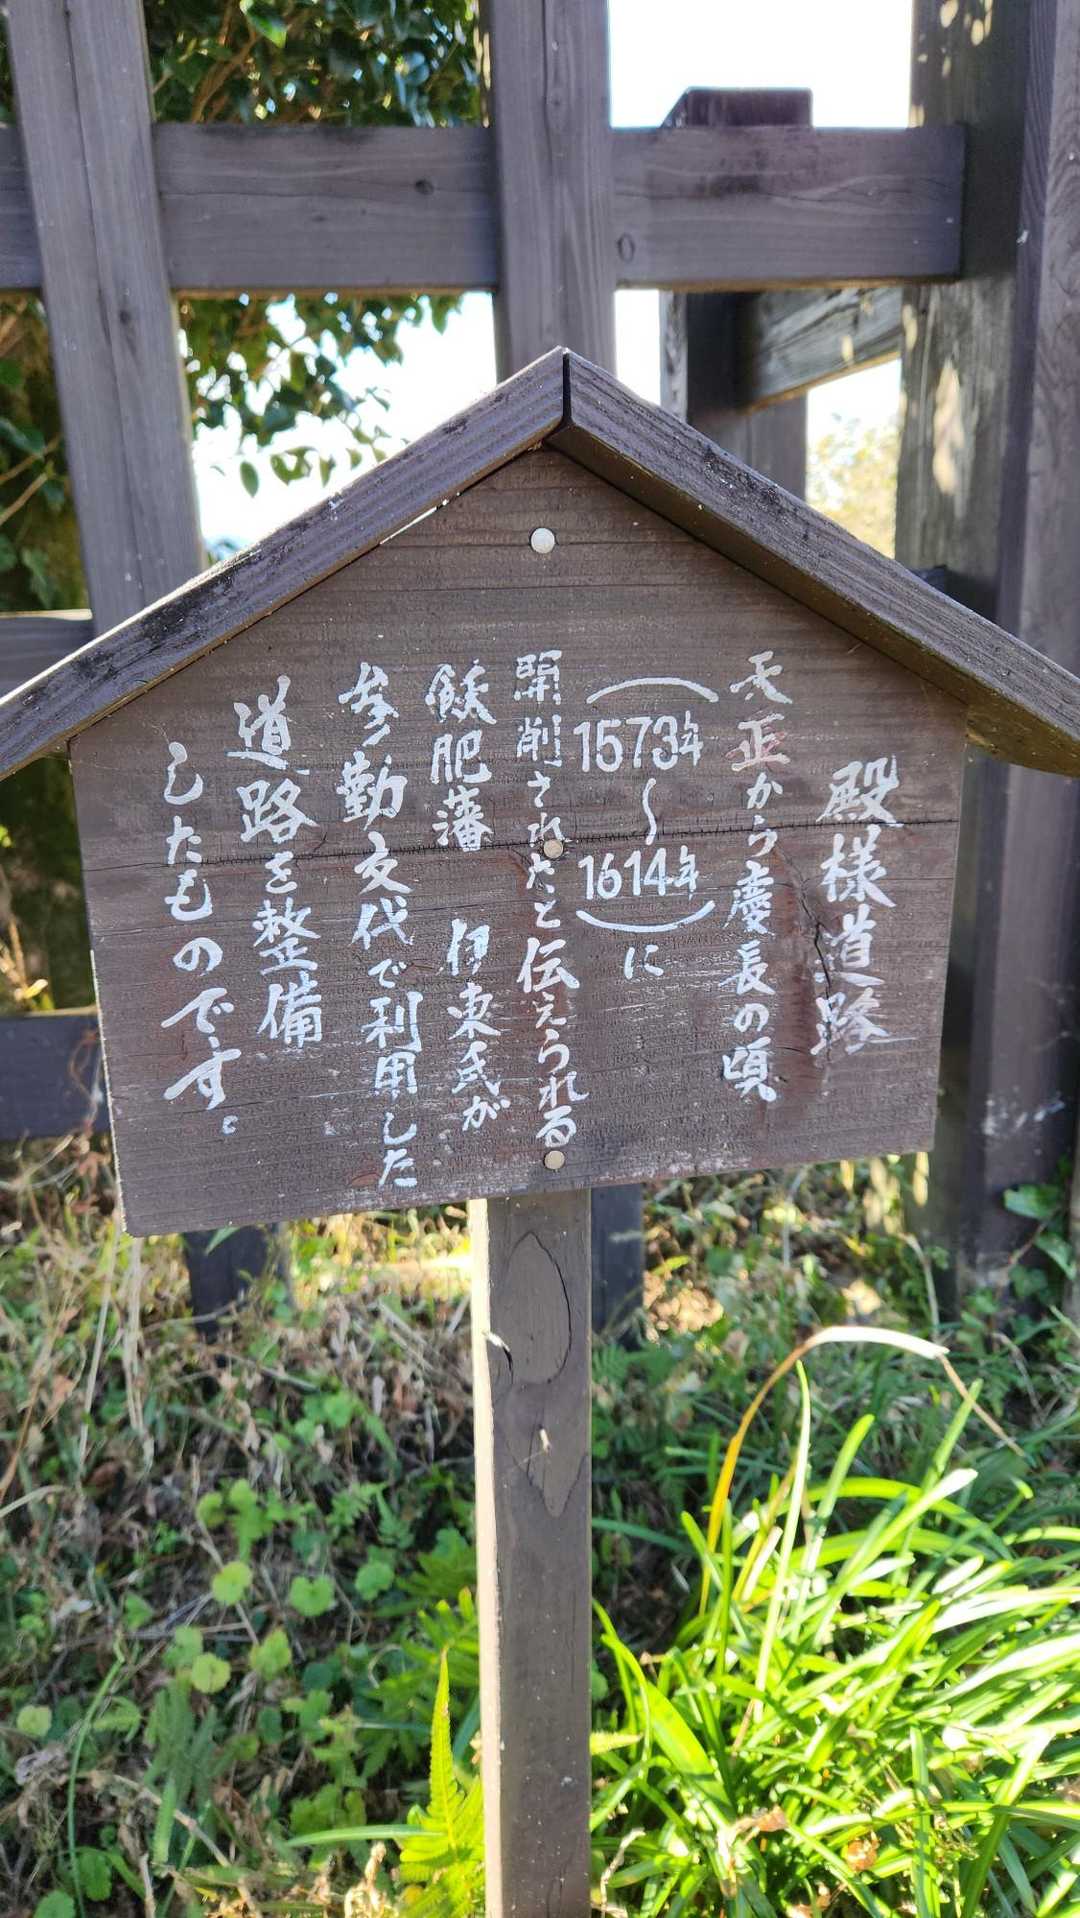 殿様道路
天正から慶長の頃
（1573年〜1614年）に
開削されたと伝えられる
飫肥藩　伊東氏が
参勤交代で利用した
道路を整備
したものです。